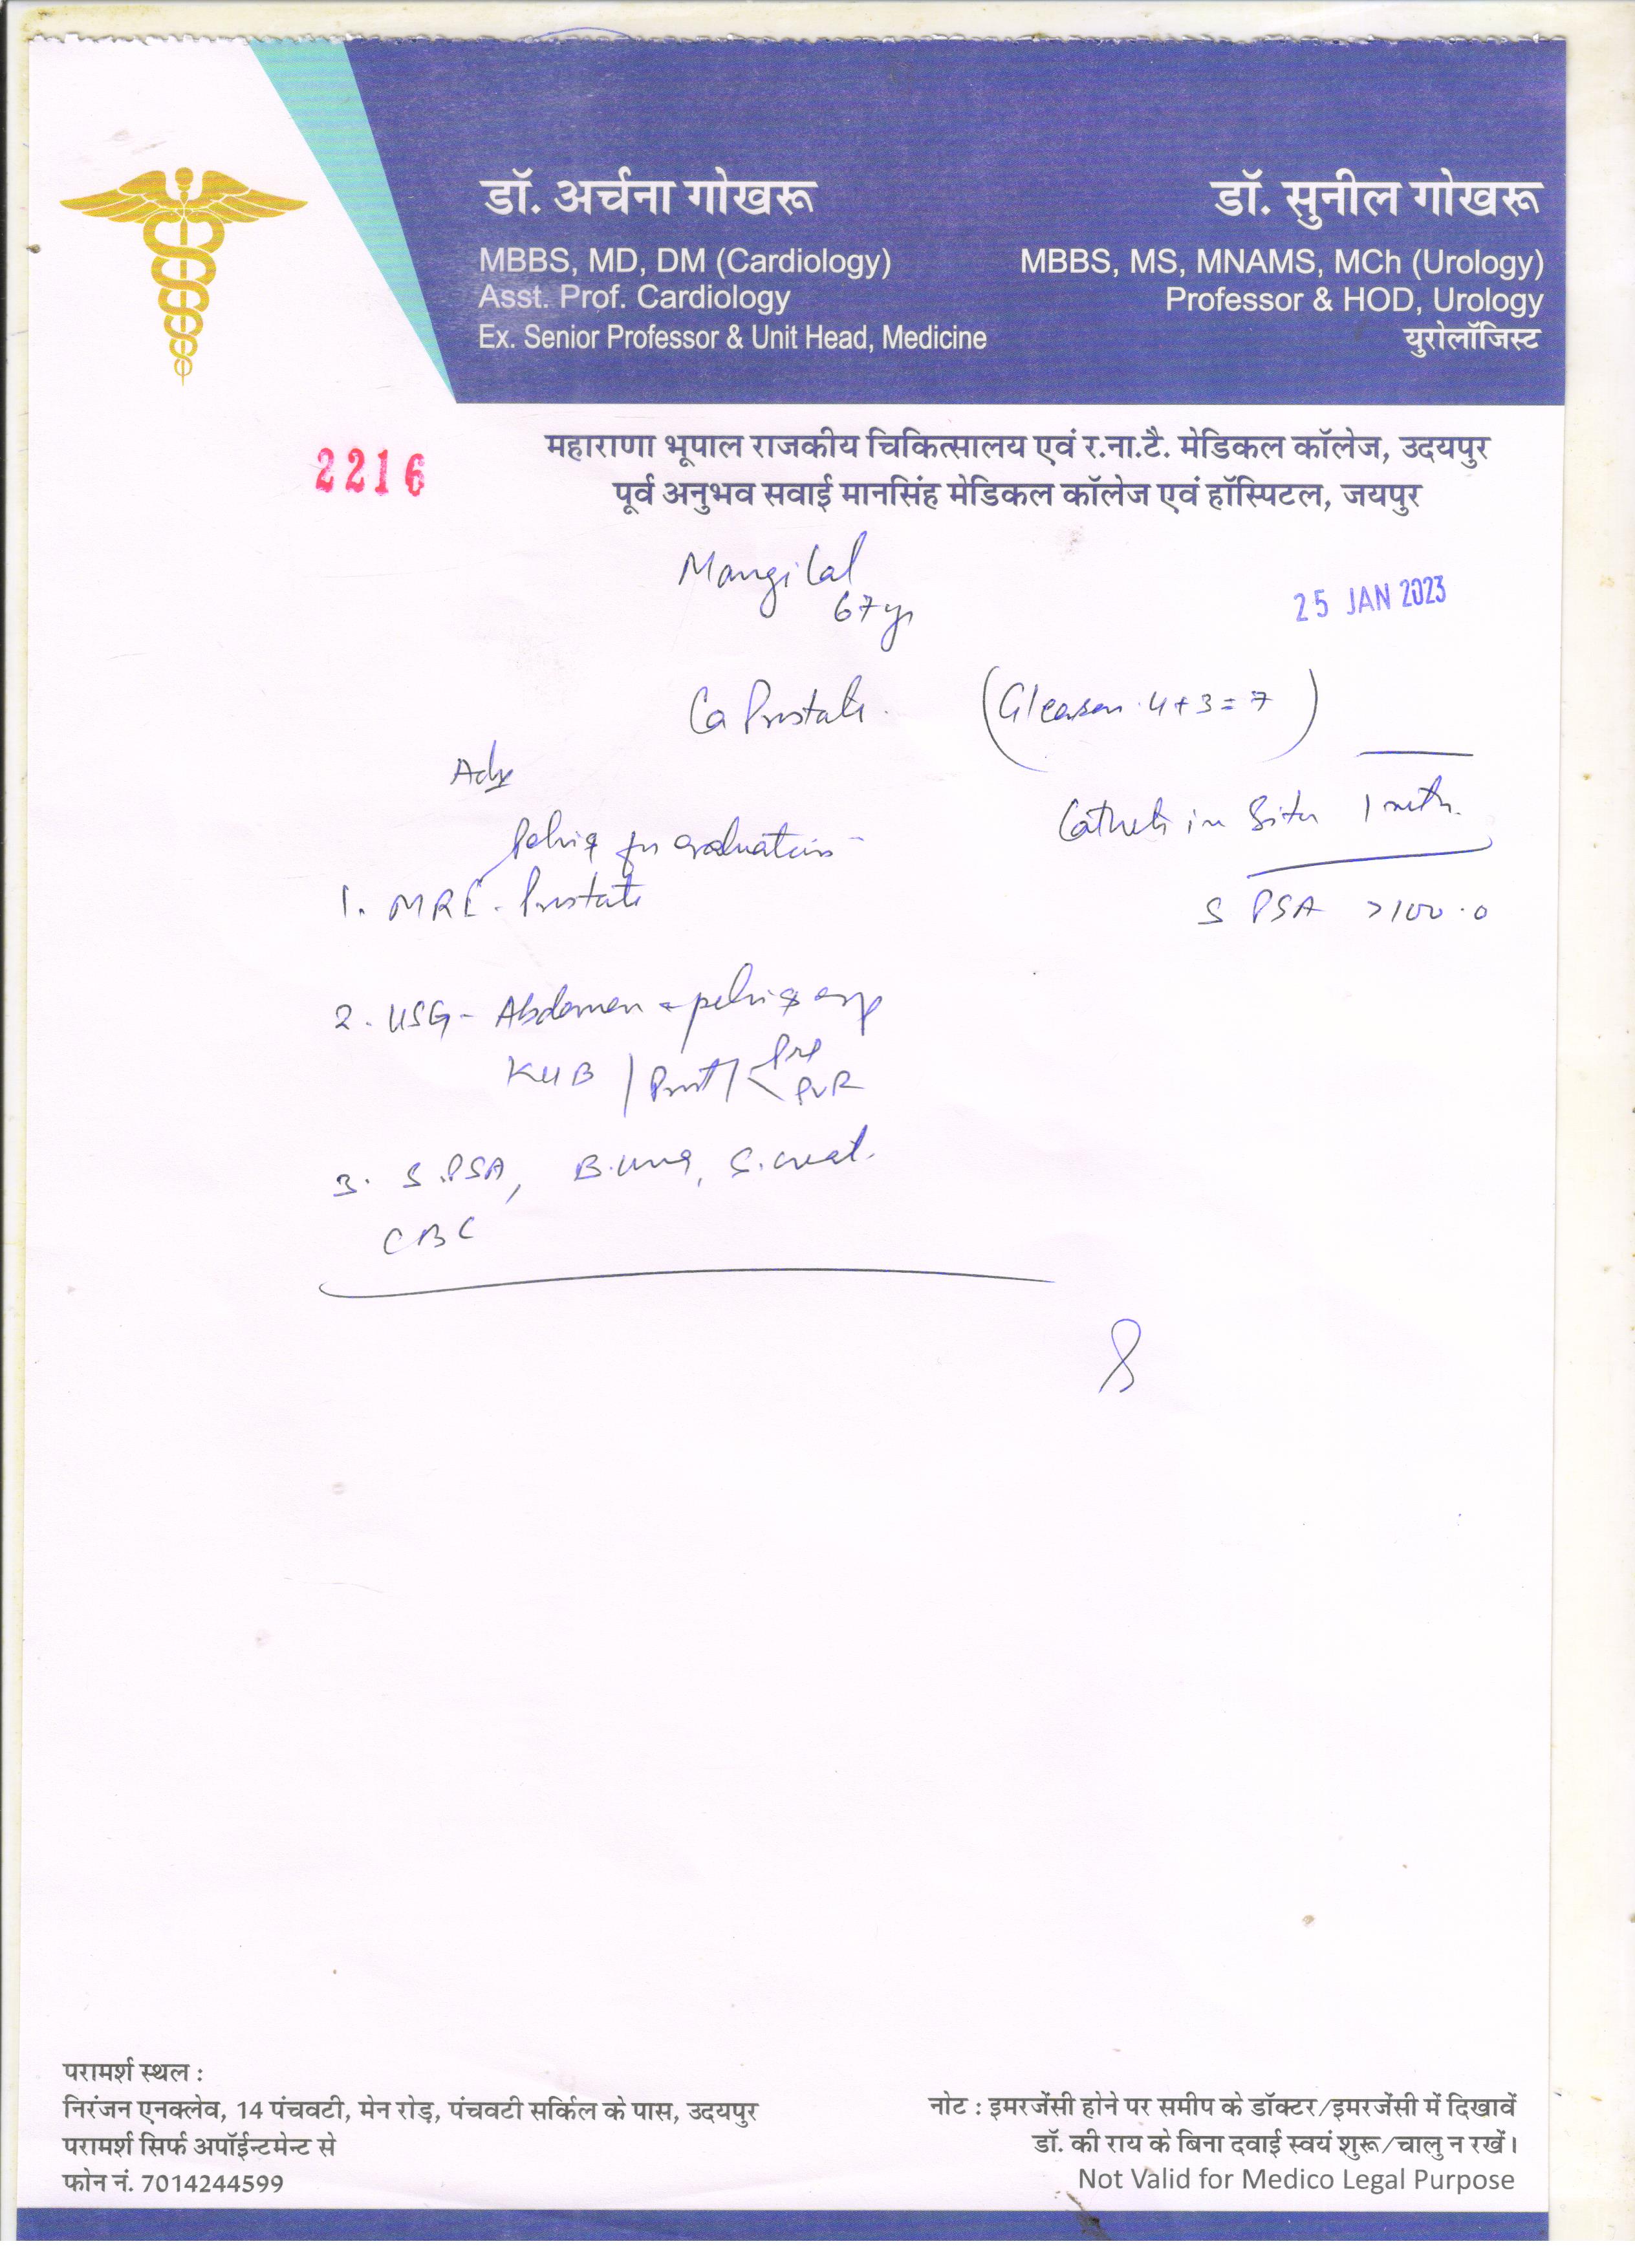 डॉ. अर्चना गोखरू
MBBS, MD, DM (Cardiology)
Asst. Prof. Cardiology
Ex. Senior Professor & Unit Head, Medicine
डॉ. सुनील गोखरू
MBBS, MS, MNAMS, MCh (Urology)
Professor & HOD, Urology
युरोलॉजिस्ट
2216
महाराणा भूपाल राजकीय चिकित्सालय एवं र.ना.टै. मेडिकल कॉलेज, उदयपुर
पूर्व अनुभव सवाई मानसिंह मेडिकल कॉलेज एवं हॉस्पिटल, जयपुर
Mangilal
67 yr
25 JAN 2023
Ca Prostate. (Gleason 4+3=7)
Adv
Catheter in Situ 1 mth.
Pelvis for evaluation -
1. MRI - Prostate
S PSA >100.0
2. USG - Abdomen & pelvis
KUB / Prost / < Pre
PVR
3. S.PSA, B.urea, S.creat.
CBC
परामर्श स्थल :
निरंजन एनक्लेव, 14 पंचवटी, मेन रोड़, पंचवटी सर्किल के पास, उदयपुर
परामर्श सिर्फ अपॉईन्टमेन्ट से
फोन नं. 7014244599
नोट : इमरजेंसी होने पर समीप के डॉक्टर/इमरजेंसी में दिखावें
डॉ. की राय के बिना दवाई स्वयं शुरू/चालु न रखें।
Not Valid for Medico Legal Purpose